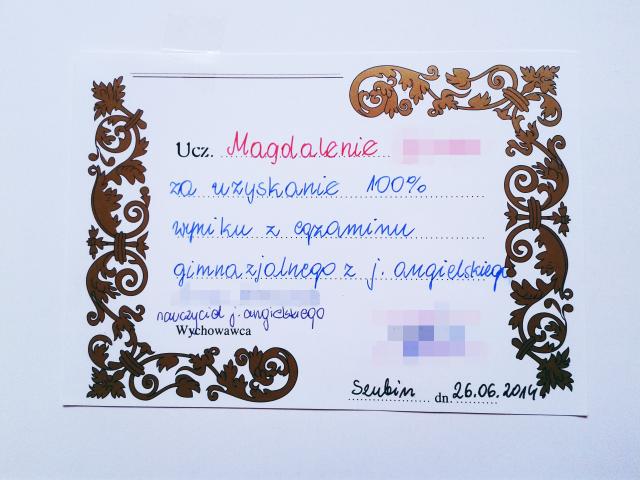 Ucz. Magdalenie
za uzyskanie 100%
wyniku z egzaminu
gimnazjalnego z j. angielskiego
nauczyciel j. angielskiego
Wychowawca
Szubin dn. 26.06.2014